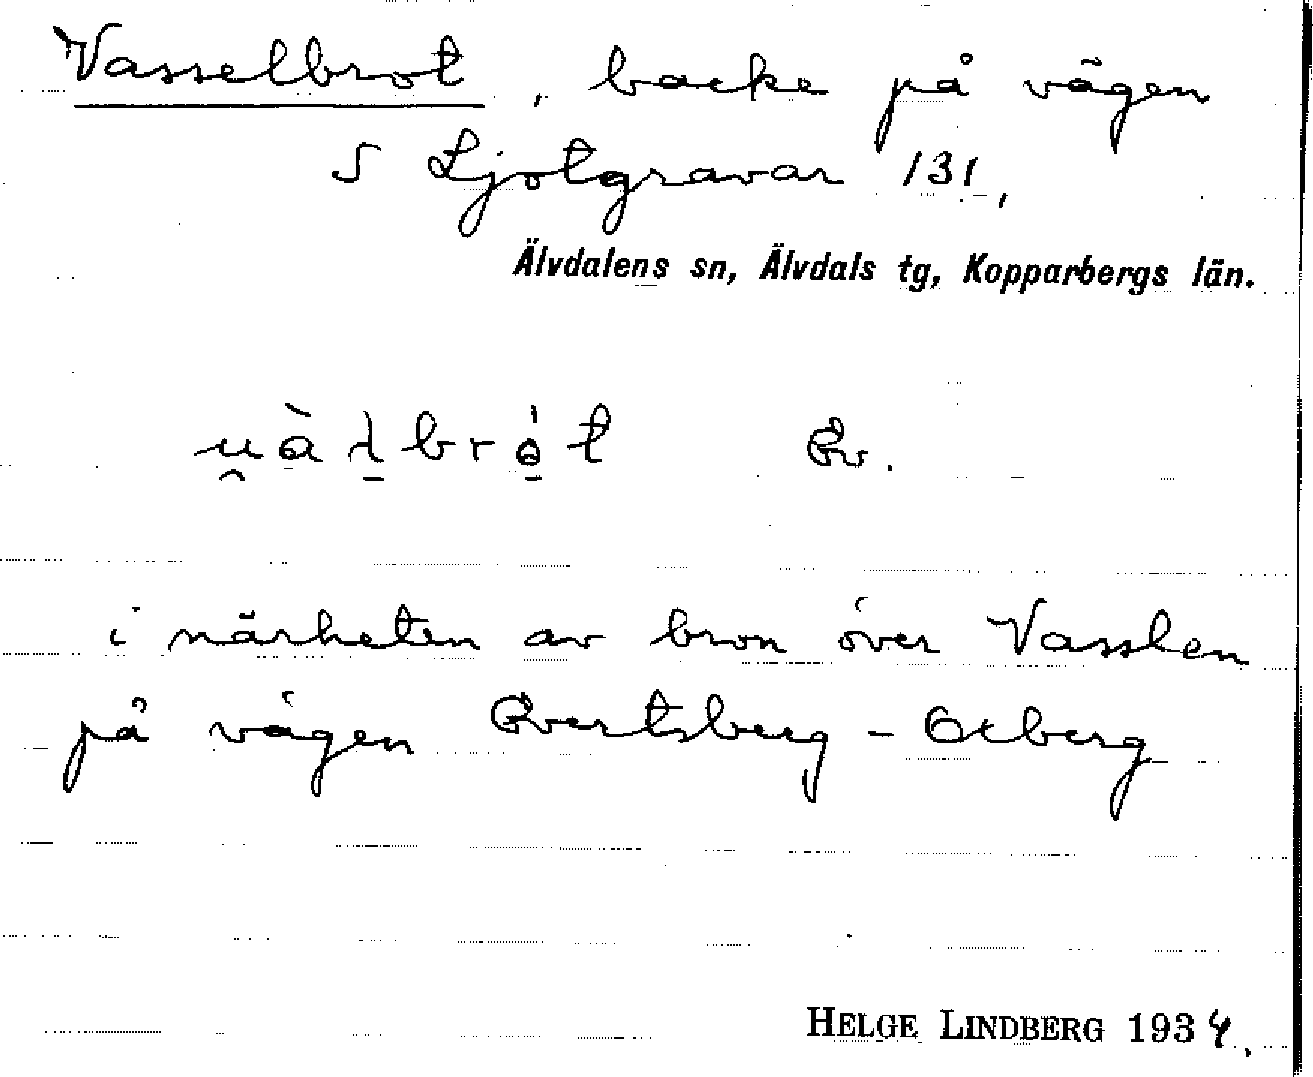 Vasselbrot, backe på vägen
S Ljotgravar 131,
Älvdalens sn, Älvdals tg, Kopparbergs län.
Ev.
i närheten av bron över Vasslen
på vägen Evertsberg - Oxberg
HELGE LINDBERG 1934.